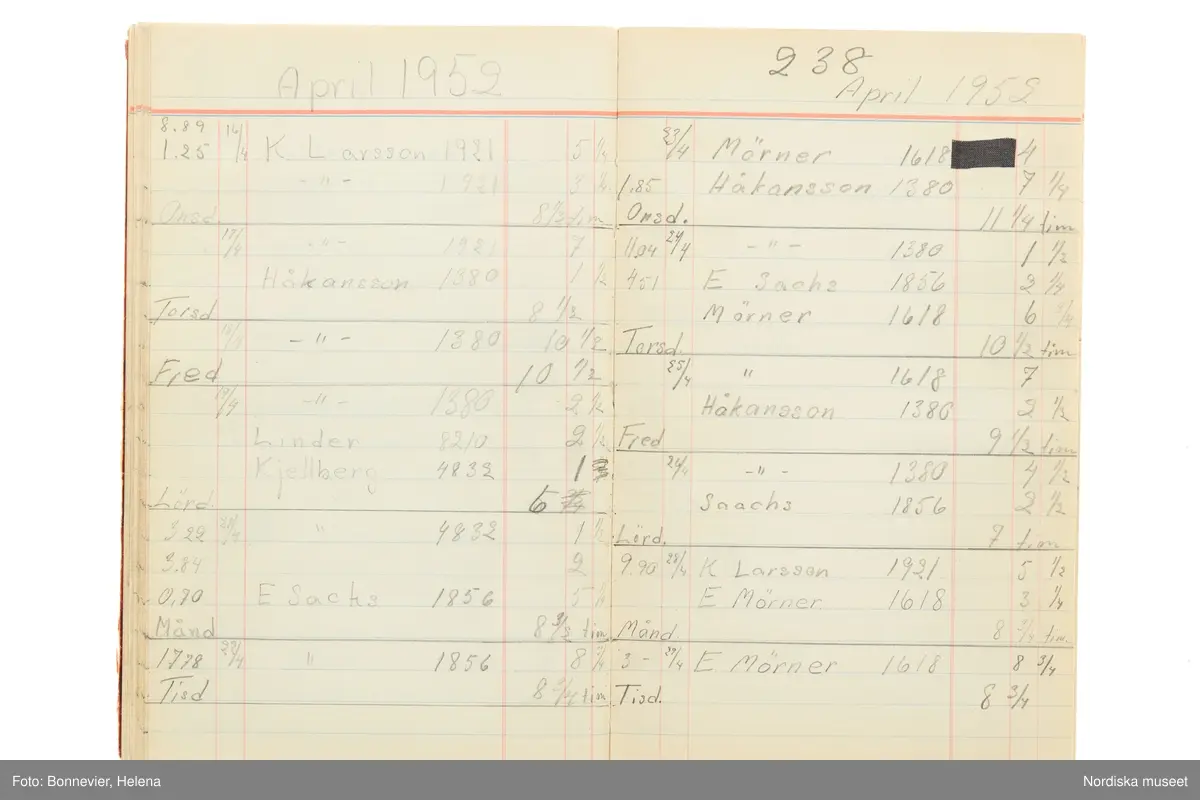 April 1952
8.89 16/4
1.25 K Larsson 1921 5 1/4
-"- 1921 3 1/4
Onsd 8 1/2 tim
17/4 -"- 1921 7
Håkansson 1380 1 1/2
Torsd 8 1/2
18/4 -"- 1380 10 1/2
Fred 10 1/2
19/4 -"- 1380 2 1/2
Linder 8210 2 1/2
Kjellberg 4832 1
Lörd. 6
3.22 " 4832 1 1/2
3.84 2
0,80 E Sachs 1856 5
Månd 8 tim
1778 " 1856 8 3/4
Tisd 8 3/4 tim
238
April 1952
23/4 Mörner 1618 4
1.85 Håkansson 1380 7 1/4
Onsd. 11 1/4 tim
11.04 24/4 -"- 1380 1 1/2
4.51 E Sachs 1856 2 1/4
Mörner 1618 6 3/4
Torsd. 10 1/2 tim
25/4 " 1618 7
Håkansson 1380 2 1/2
Fred 9 1/2 tim
26/4 -"- 1380 4 1/2
Saachs 1856 2 1/2
Lörd. 7 tim
9.90 28/4 K Larsson 1921 5 1/2
E Mörner 1618 3 1/4
Månd 8 3/4 tim.
3 - 29/4 E Mörner 1618 8 3/4
Tisd. 8 3/4
Foto: Bonnevier, Helena
Nordiska museet